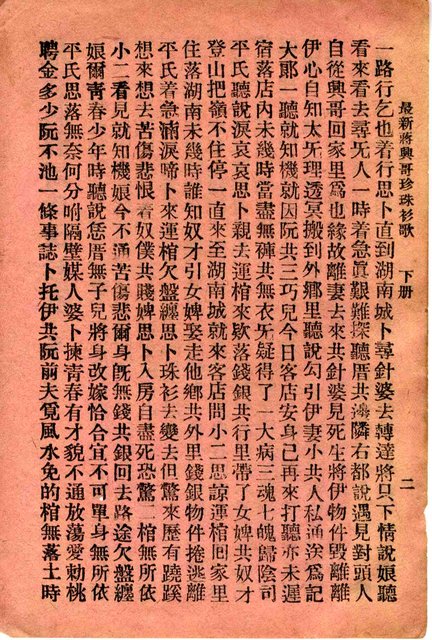 最新蔣興哥珍珠衫歌　下册
二
一路行乞也着行思卜直到湖南城卜尋針婆去轉達將只下情說娘聽
看來看去尋旡人一時着急真艱難探聽厝共鄰右都說遇見對頭人
自從興哥回家里爲也緣故離妻去來共針婆見死生將伊物件毀離離
伊心自知太旡理透冥搬到外鄉里聽說勾引伊妻小共人私通送爲記
大郎一聽就知機就因阮共三巧兒今日客店安身己再來打聽亦未遲
宿落店內未幾時當盡無褲共無衣旡疑得了一大病三魂七魄歸陰司
平氏聽說淚哀哀思卜親去運棺來欵落錢銀共行里帶了女婢共奴才
登山把嶺不住停一直來至湖南城就來客店問小二思諒運棺回家里
住落湖南未幾時誰知奴才引女婢娶走他鄉共外里錢銀物件捲逃離
平氏着急滴淚啼卜來運棺欠盤纏思卜珠衫去變去但驚來歷有蹺蹊
想來想去苦傷悲恨着奴僕共賤婢思卜入房自盡死恐驚二棺無所依
小二看見就知機娘今不通苦傷悲爾身旣無錢共銀回去路途欠盤纏
娘爾青春少年時聽說恁厝無子兒將身改嫁恰合宜不可單身無所依
平氏思落無奈何分咐隔壁媒人婆卜揀青春有才貌不通放蕩愛勅桃
聘金多少阮不池一條事誌卜托伊共阮前夫覓風水免的棺無落土時